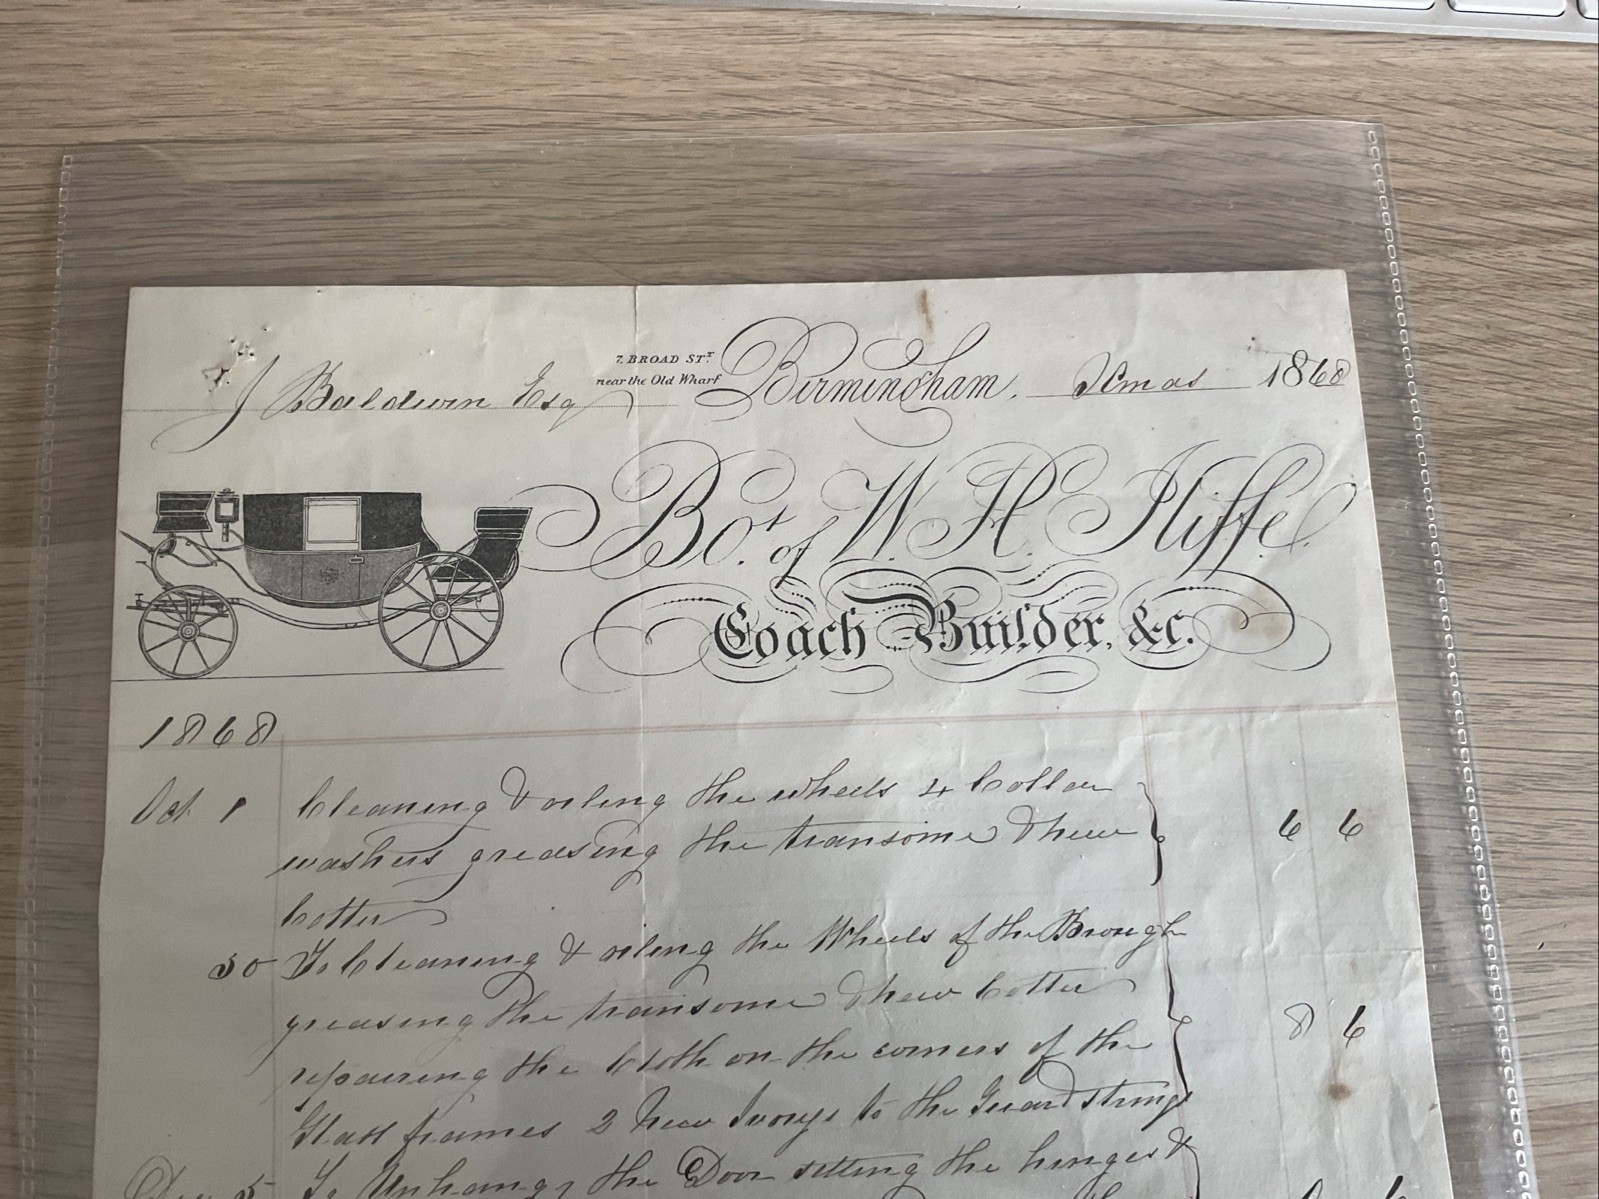 7. BROAD ST.
near the Old Wharf
J Baldwin Esq Birmingham. Xmas 1868
Bot. of W. H. Iliffe.
Coach Builder, &c.
1868
Oct 1 Cleaning & oiling the wheels 4 Collar
washers greasing the transome & new
Cotter 6 6
30 To Cleaning & oiling the Wheels of the Brough
greasing the transome & new Cotter
repairing the Cloth on the corners of the
Glass frames 2 New Ivorys to the Guard strings 8 6
Dec 5 To Unhang, the Door setting the hinges &